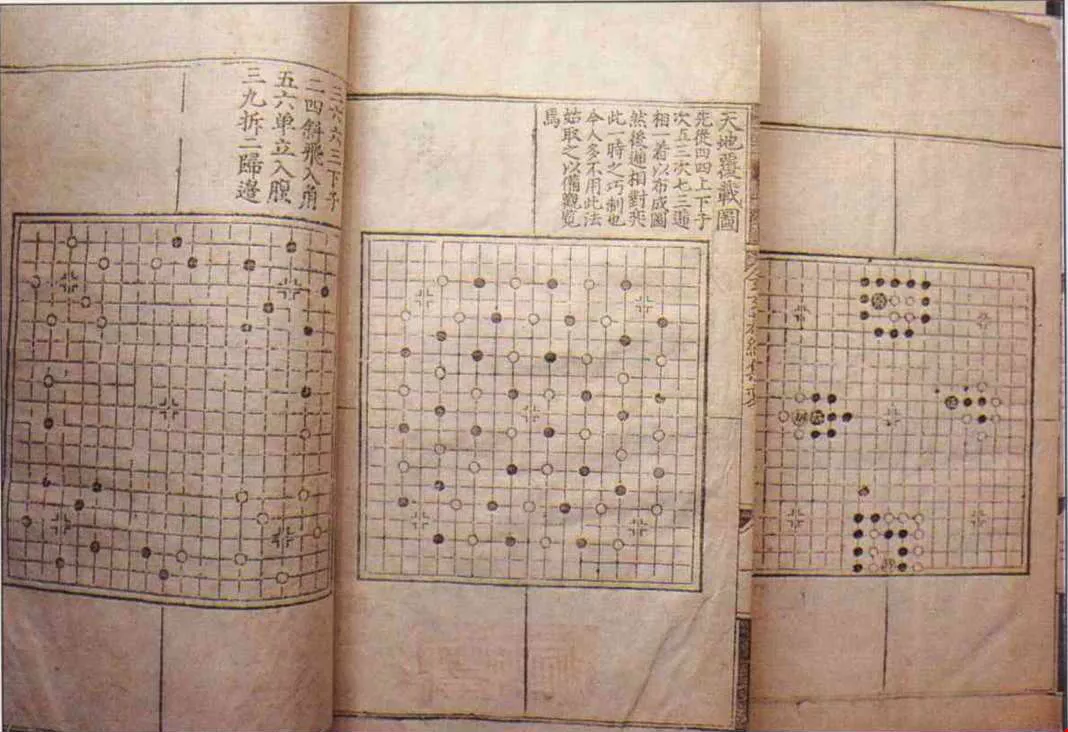 天地覆載圖
先從四四上下子
次五三次七三遞
相一着以布成圖
然後遞相對奕
此一時之巧制也
今人多不用此法
姑取之以備觀覽
焉
三六六三下子
二四斜飛入角
五六单立入腹
三九拆二歸邊